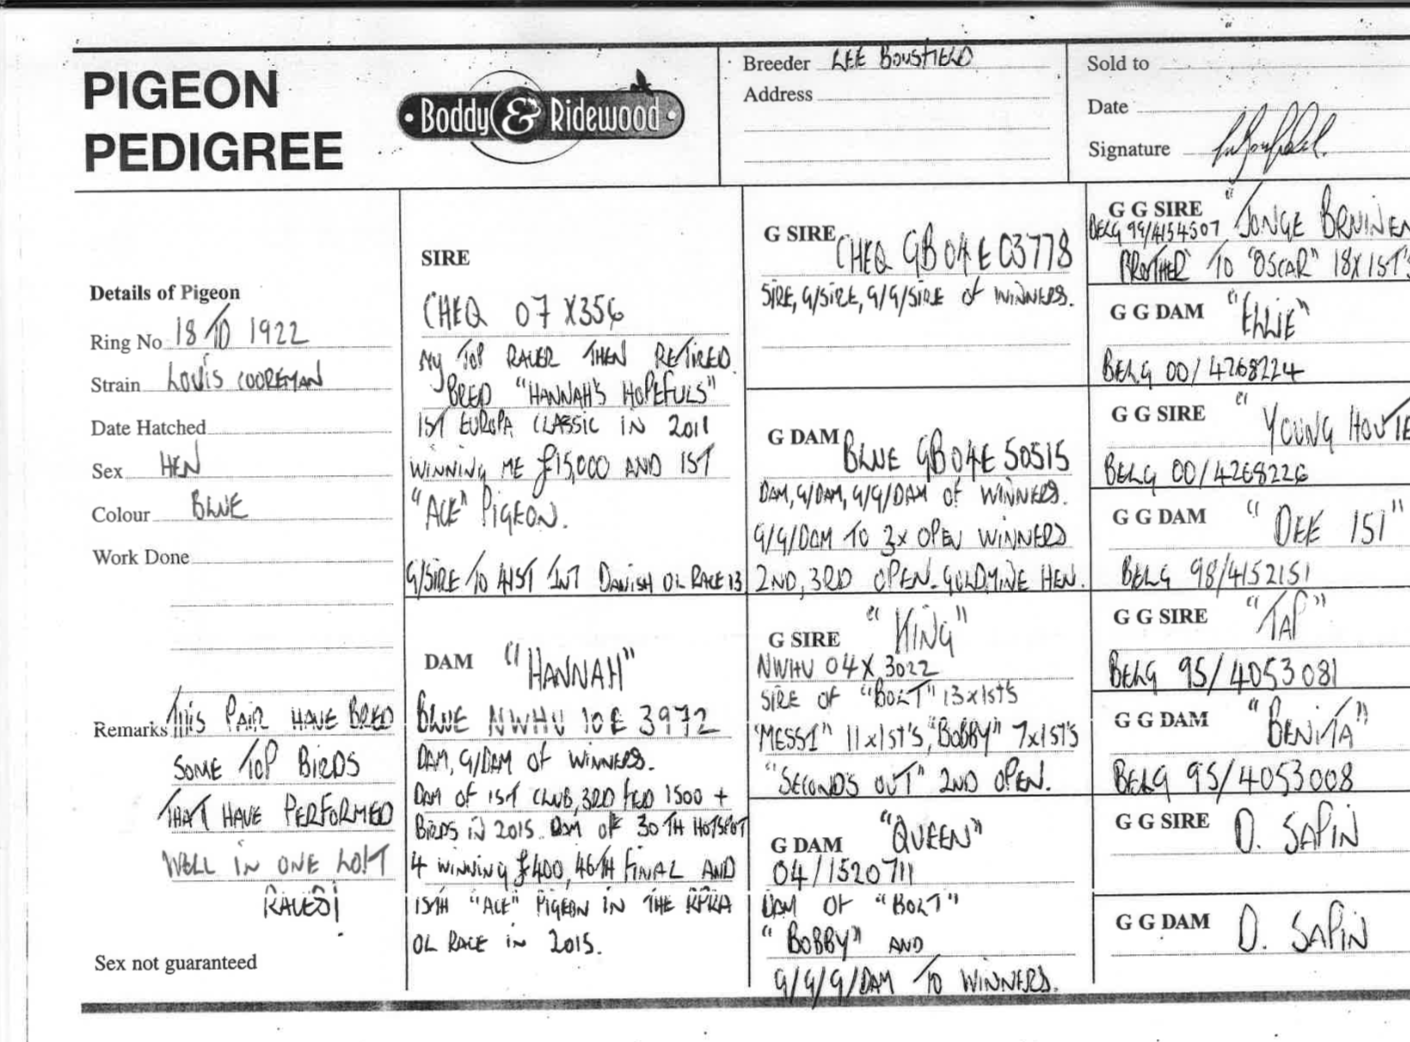 PIGEON
PEDIGREE
Boddy & Ridewood
Breeder LEE BOUSFIELD
Address
Sold to
Date
Signature
Details of Pigeon
Ring No 18 TD 1922
Strain LOUIS COOREMAN
Date Hatched
Sex HEN
Colour BLUE
Work Done
Remarks THIS PAIR HAVE BRED
SOME TOP BIRDS
THAT HAVE PERFORMED
WELL IN ONE LOFT
RACES!
Sex not guaranteed
SIRE
CHEQ 07 X356
MY TOP RACER THEN RETIRED.
BRED "HANNAH'S HOPEFULS"
1ST EUROPA CLASSIC IN 2011
WINNING ME £15,000 AND 1ST
"ACE" PIGEON.
G/SIRE TO 41ST INT DANISH OL RACE 13
DAM "HANNAH"
BLUE NWHU 10E 3972
DAM, G/DAM OF WINNERS.
DAM OF 1ST CLUB, 3RD FED 1500 +
BIRDS IN 2015. DAM OF 30TH HOTSPOT
4 WINNING £400, 46TH FINAL AND
15TH "ACE" PIGEON IN THE RPRA
OL RACE IN 2015.
G SIRE CHEQ GB04E 03778
SIRE, G/SIRE, G/G/SIRE OF WINNERS.
G DAM BLUE GB04E 50515
DAM, G/DAM, G/G/DAM OF WINNERS.
G/G/DAM TO 3X OPEN WINNERS
2ND, 3RD OPEN-GOLDMINE HEN.
G SIRE "KING"
NWHU 04X3022
SIRE OF "BOLT" 13x1ST'S
"MESSI" 11x1ST'S, "BOBBY" 7x1ST'S
"SECONDS OUT" 2ND OPEN.
G DAM "QUEEN"
04/1520711
DAM OF "BOLT"
"BOBBY" AND
G/G/G/DAM TO WINNERS.
G G SIRE "JONGE BRUINEN
BELG 99/4154507
BROTHER TO "OSCAR" 18X1ST'S
G G DAM "ELLIE"
BELG 00/4268224
G G SIRE "YOUNG
BELG 00/4268226
G G DAM "DEE 151"
BELG 98/4152151
G G SIRE "TAP"
BELG 95/4053081
G G DAM "BENITA"
BELG 95/4053008
G G SIRE D. SAPIN
G G DAM D. SAPIN